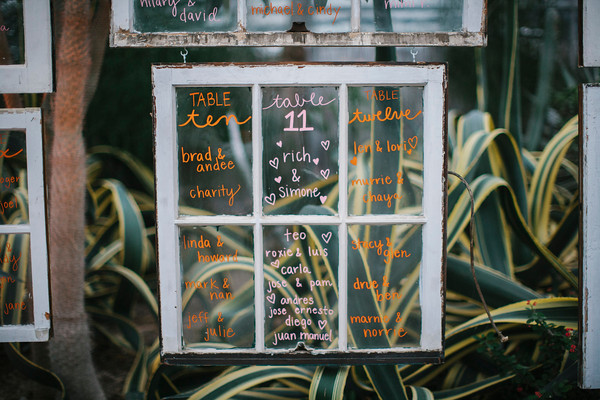 david
michael & cindy
TABLE
ten
brad &
andee
charity
linda &
howard
mark &
nan
jeff &
julie
table
11
rich
&
simone
teo
roxie & luis
carla
jose & pam
andres
jose ernesto
diego
juan manuel
TABLE
twelve
lori & lori
&
stacy &
glen
&
marni &
norrie